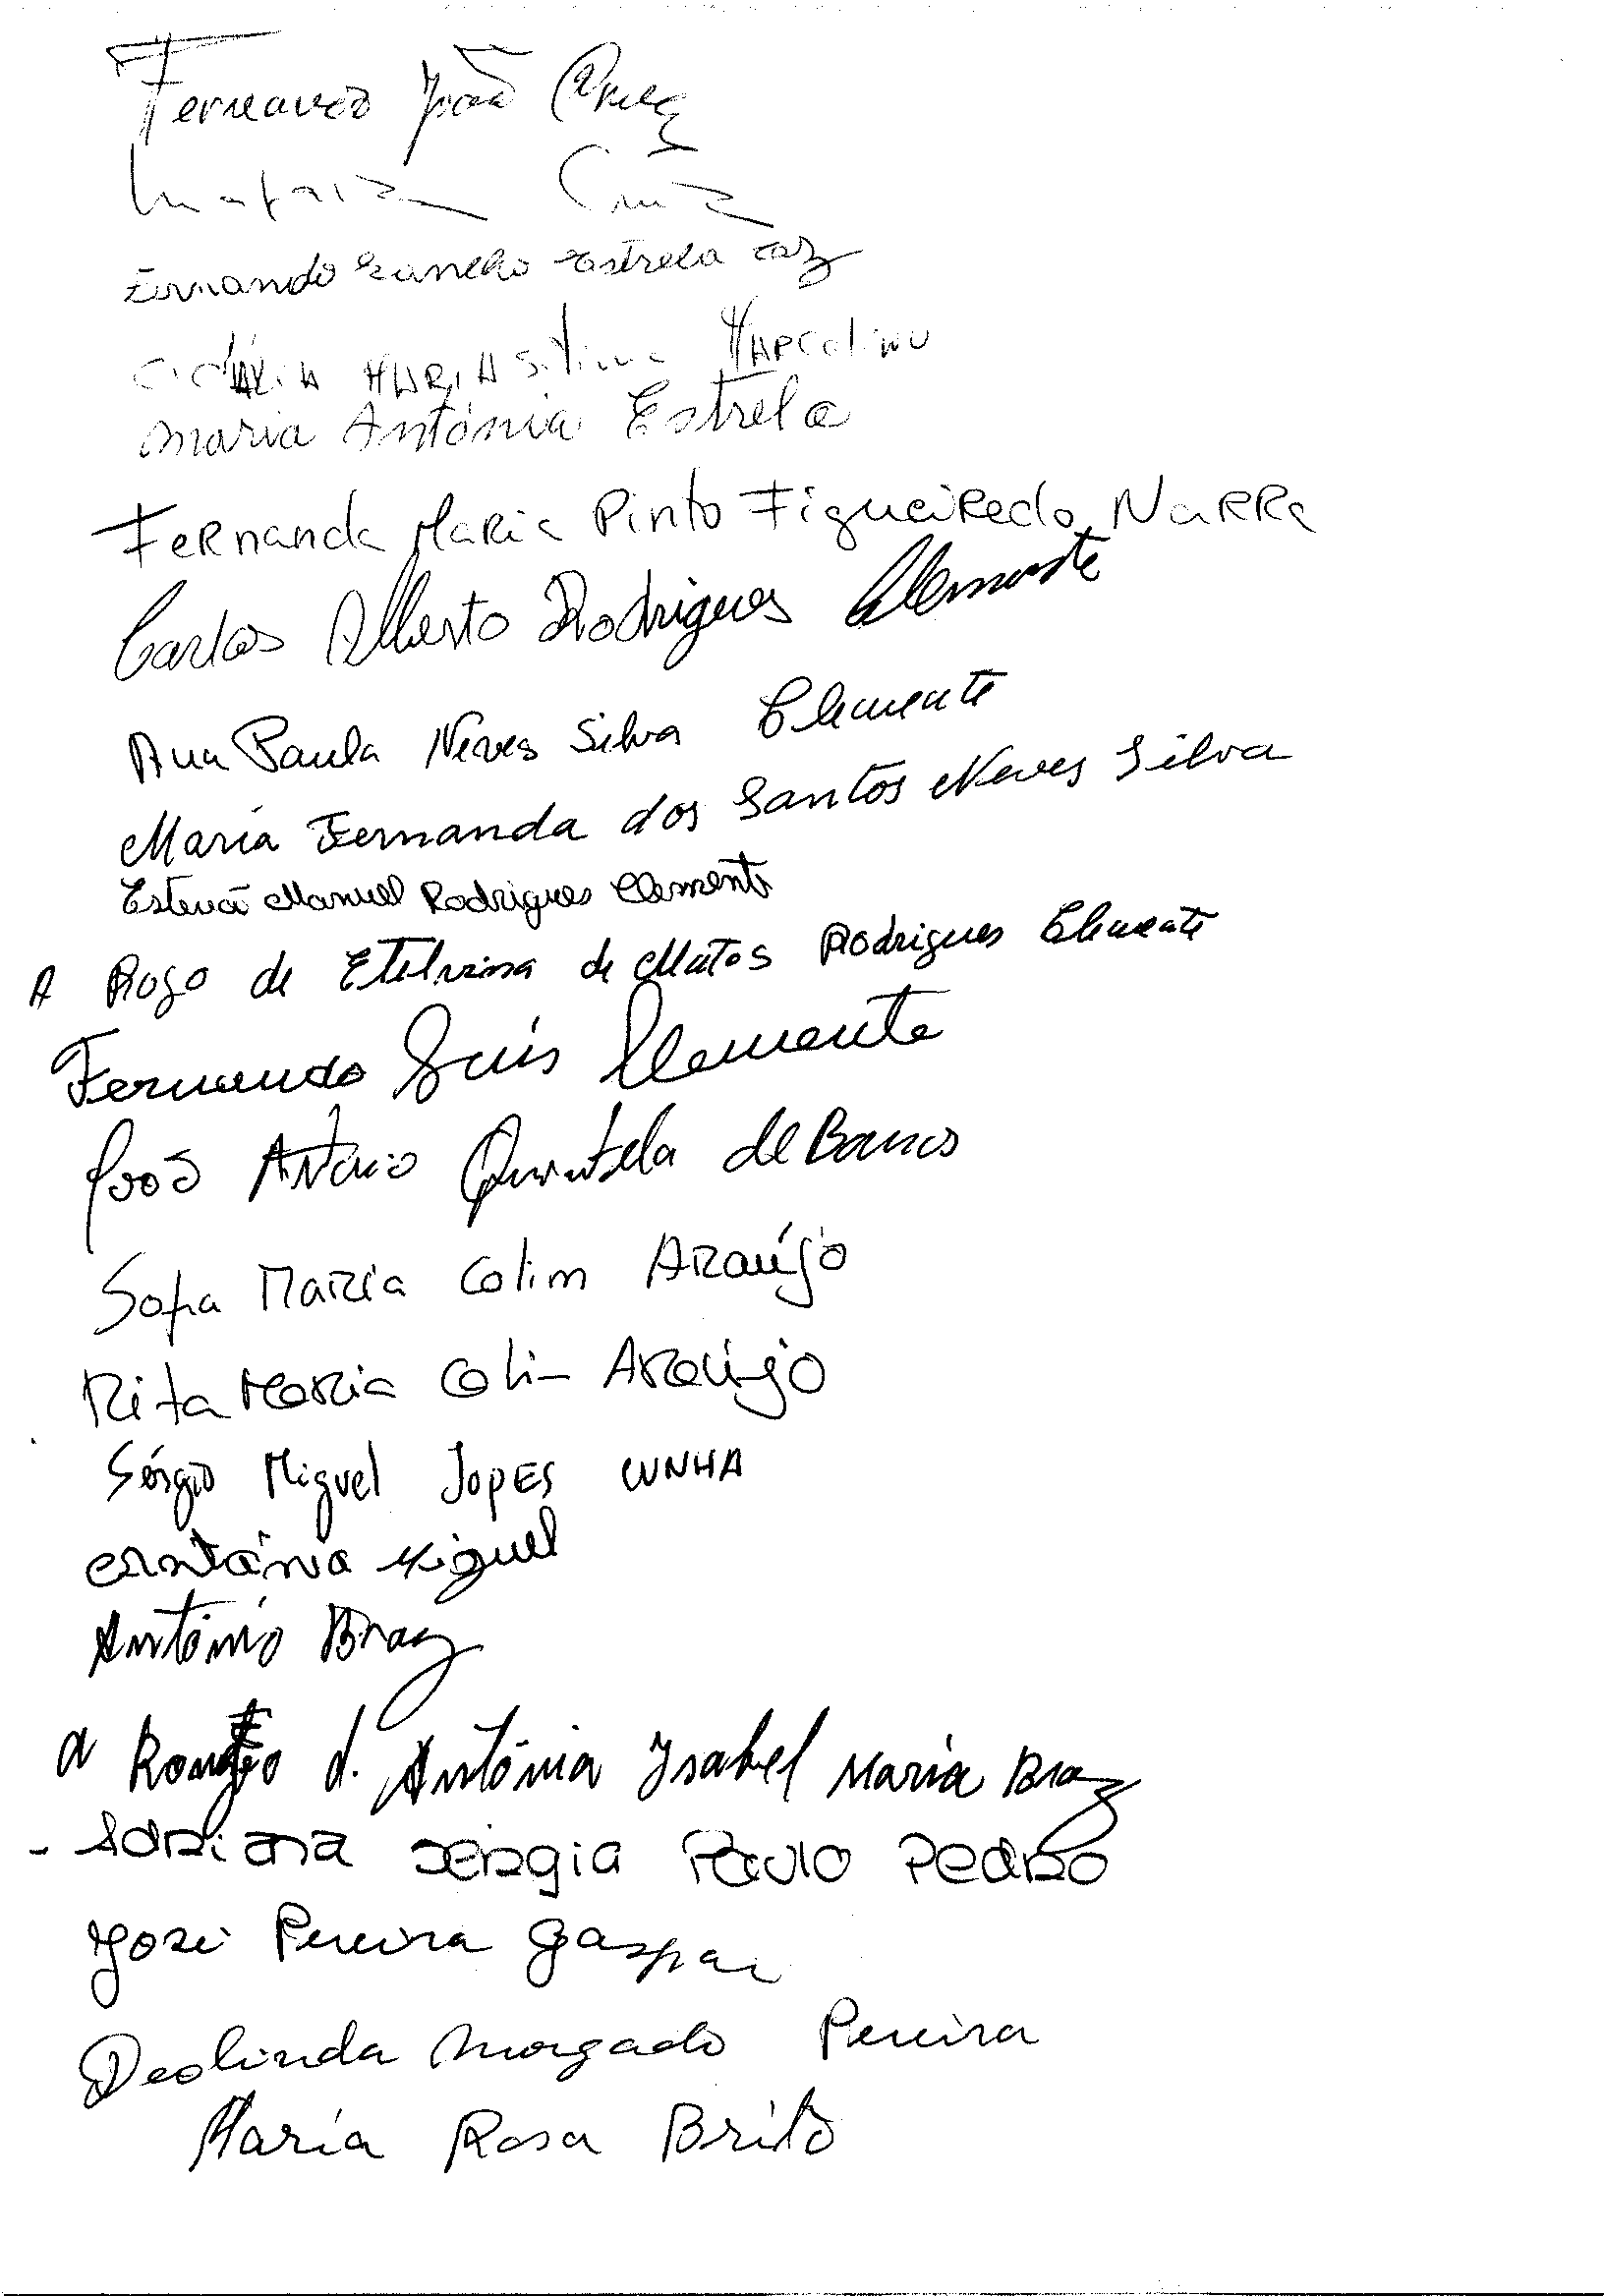 Fernando João Cruz
Cruz
Fernando Sancho Estrela Vaz
MARIA Silva MARCOLINO
Maria Antónia Estrela
Fernanda Maria Pinto Figueiredo Narra
Carlos Alberto Rodrigues Clemente
Ana Paula Neves Silva Clemente
Maria Fernanda dos Santos Neves Silva
Estevã Manuel Rodrigues Clemente
A Rogo de Etelvina de Matos Rodrigues Clemente
Fernando Luís Clemente
João António Quintela de Barros
Sofia Maria Colim Araújo
Rita Maria Colim Araújo
Sérgio Miguel Lopes CUNHA
Antánia Miguel
António Braz
a d. Antónia Isabel Maria Braz
- Adriana Sergia Paulo Pedro
José Pereira Gaspar
Deolinda Morgado Pereira
Maria Rosa Brito